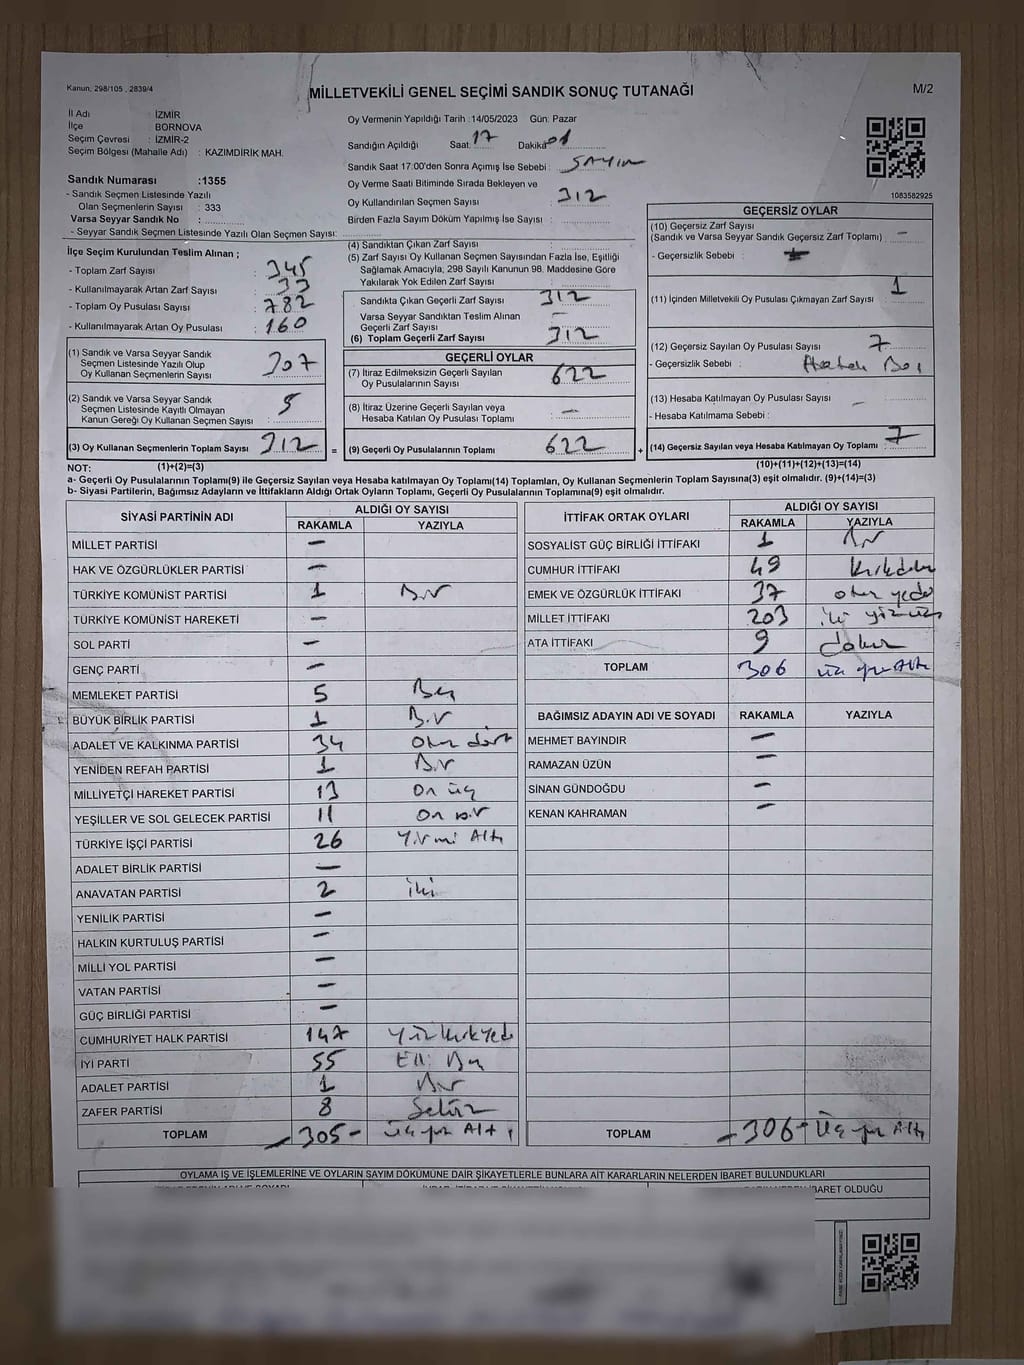 Kanun, 298/105 , 2839/4
MİLLETVEKİLİ GENEL SEÇİMİ SANDIK SONUÇ TUTANAĞI
M/2
İl Adı : İZMİR
İlçe BORNOVA
Seçim Çevresi : İZMİR-2
Seçim Bölgesi (Mahalle Adı) : KAZIMDİRİK MAH.
Sandık Numarası :1355
- Sandık Seçmen Listesinde Yazılı
Olan Seçmenlerin Sayısı : 333
Varsa Seyyar Sandık No :
- Seyyar Sandık Seçmen Listesinde Yazılı Olan Seçmen Sayısı:
Oy Vermenin Yapıldığı Tarih :14/05/2023 Gün: Pazar
Sandığın Açıldığı Saat: 17 Dakika: 01
Sandık Saat 17:00'den Sonra Açımış İse Sebebi : SAYIM
Oy Verme Saati Bitiminde Sırada Bekleyen ve
Oy Kullandırılan Seçmen Sayısı : 312
Birden Fazla Sayım Döküm Yapılmış İse Sayısı :
1083582925
İlçe Seçim Kurulundan Teslim Alınan ;
- Toplam Zarf Sayısı : 345
- Kullanılmayarak Artan Zarf Sayısı : 33
- Toplam Oy Pusulası Sayısı : 782
- Kullanılmayarak Artan Oy Pusulası : 160
(1) Sandık ve Varsa Seyyar Sandık
Seçmen Listesinde Yazılı Olup
Oy Kullanan Seçmenlerin Sayısı 307
(2) Sandık ve Varsa Seyyar Sandık
Seçmen Listesinde Kayıtlı Olmayan
Kanun Gereği Oy Kullanan Seçmen Sayısı 5
(3) Oy Kullanan Seçmenlerin Toplam Sayısı 312
(4) Sandıktan Çıkan Zarf Sayısı :
(5) Zarf Sayısı Oy Kullanan Seçmen Sayısından Fazla İse, Eşitliği
Sağlamak Amacıyla; 298 Sayılı Kanunun 98. Maddesine Göre
Yakılarak Yok Edilen Zarf Sayısı :
Sandıkta Çıkan Geçerli Zarf Sayısı : 312
Varsa Seyyar Sandıktan Teslim Alınan
Geçerli Zarf Sayısı : —
(6) Toplam Geçerli Zarf Sayısı : 312
GEÇERLİ OYLAR
(7) İtiraz Edilmeksizin Geçerli Sayılan
Oy Pusulalarının Sayısı : 622
(8) İtiraz Üzerine Geçerli Sayılan veya
Hesaba Katılan Oy Pusulası Toplamı : —
= (9) Geçerli Oy Pusulalarının Toplamı 622 +
GEÇERSİZ OYLAR
(10) Geçersiz Zarf Sayısı
(Sandık ve Varsa Seyyar Sandık Geçersiz Zarf Toplamı) : —
- Geçersizlik Sebebi :
(11) İçinden Milletvekili Oy Pusulası Çıkmayan Zarf Sayısı : 1
(12) Geçersiz Sayılan Oy Pusulası Sayısı : 7
- Geçersizlik Sebebi :
(13) Hesaba Katılmayan Oy Pusulası Sayısı : —
- Hesaba Katılmama Sebebi :
(14) Geçersiz Sayılan veya Hesaba Katılmayan Oy Toplamı : 7
NOT: (1)+(2)=(3) (10)+(11)+(12)+(13)=(14)
a- Geçerli Oy Pusulalarının Toplamı(9) ile Geçersiz Sayılan veya Hesaba katılmayan Oy Toplamı(14) Toplamları, Oy Kullanan Seçmenlerin Toplam Sayısına(3) eşit olmalıdır. (9)+(14)=(3)
b- Siyasi Partilerin, Bağımsız Adayların ve İttifakların Aldığı Ortak Oyların Toplamı, Geçerli Oy Pusulalarının Toplamına(9) eşit olmalıdır.
SİYASİ PARTİNİN ADI ALDIĞI OY SAYISI
RAKAMLA YAZIYLA
MİLLET PARTİSİ —
HAK VE ÖZGÜRLÜKLER PARTİSİ —
TÜRKİYE KOMÜNİST PARTİSİ 1 Bir
TÜRKİYE KOMÜNİST HAREKETİ —
SOL PARTİ —
GENÇ PARTİ —
MEMLEKET PARTİSİ 5 Beş
BÜYÜK BİRLİK PARTİSİ 1 Bir
ADALET VE KALKINMA PARTİSİ 34 otuz dört
YENİDEN REFAH PARTİSİ 1 Bir
MİLLİYETÇİ HAREKET PARTİSİ 13 On üç
YEŞİLLER VE SOL GELECEK PARTİSİ 11 On bir
TÜRKİYE İŞÇİ PARTİSİ 26 Yirmi Altı
ADALET BİRLİK PARTİSİ —
ANAVATAN PARTİSİ 2 iki
YENİLİK PARTİSİ —
HALKIN KURTULUŞ PARTİSİ —
MİLLİ YOL PARTİSİ —
VATAN PARTİSİ —
GÜÇ BİRLİĞİ PARTİSİ —
CUMHURİYET HALK PARTİSİ 147 Yüz kırk yedi
İYİ PARTİ 55 Elli Beş
ADALET PARTİSİ 1 Bir
ZAFER PARTİSİ 8 Sekiz
TOPLAM — 305 — üç yüz Altı
İTTİFAK ORTAK OYLARI ALDIĞI OY SAYISI
RAKAMLA YAZIYLA
SOSYALİST GÜÇ BİRLİĞİ İTTİFAKI 1 Bir
CUMHUR İTTİFAKI 49 kırkdokuz
EMEK VE ÖZGÜRLÜK İTTİFAKI 37 otuz yedi
MİLLET İTTİFAKI 203 iki yüz üç
ATA İTTİFAKI 9 dokuz
TOPLAM 306 üç yüz Altı
BAĞIMSIZ ADAYIN ADI VE SOYADI RAKAMLA YAZIYLA
MEHMET BAYINDIR —
RAMAZAN ÜZÜN —
SİNAN GÜNDOĞDU —
KENAN KAHRAMAN —
TOPLAM — 306 — Üç yüz Altı
OYLAMA İŞ VE İŞLEMLERİNE VE OYLARIN SAYIM DÖKÜMÜNE DAİR ŞİKAYETLERLE BUNLARA AİT KARARLARIN NELERDEN İBARET BULUNDUKLARI
İBARET OLDUĞU